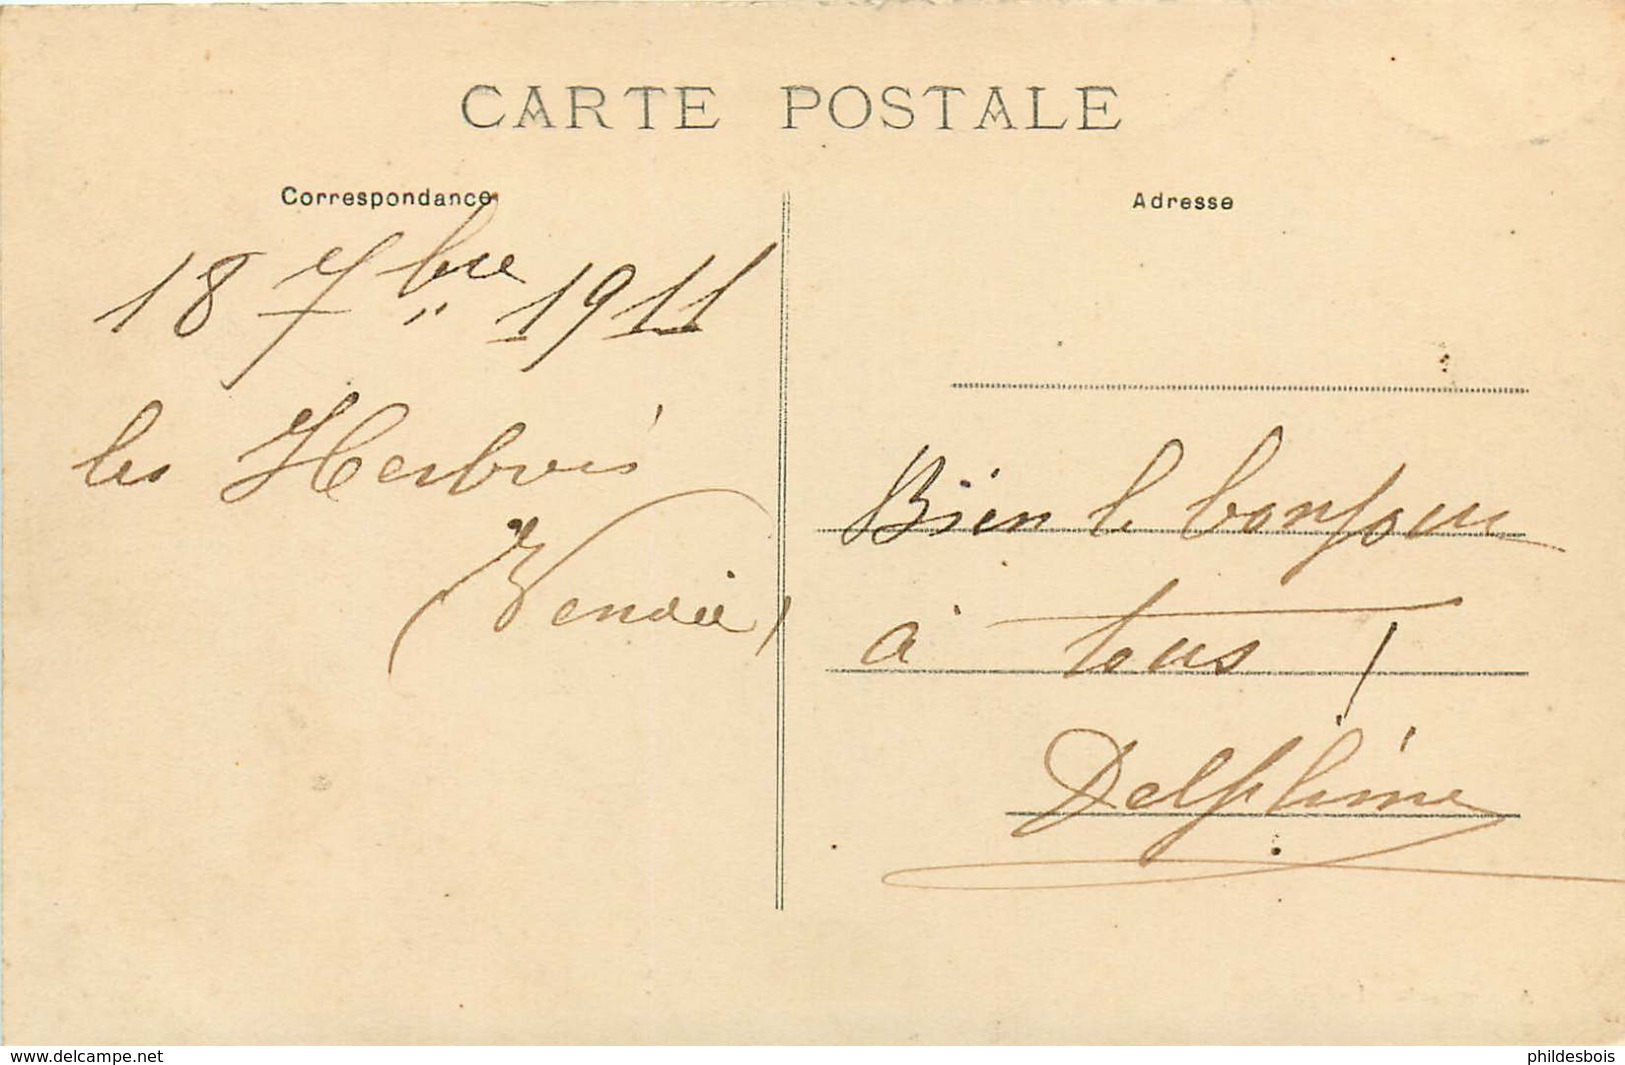 CARTE POSTALE
Correspondance
18 7bre 1911
les Herbiers
(Vendée)
Adresse
Bien le bonjour
à tous !
Delphine
www.delcampe.net
phildesbois